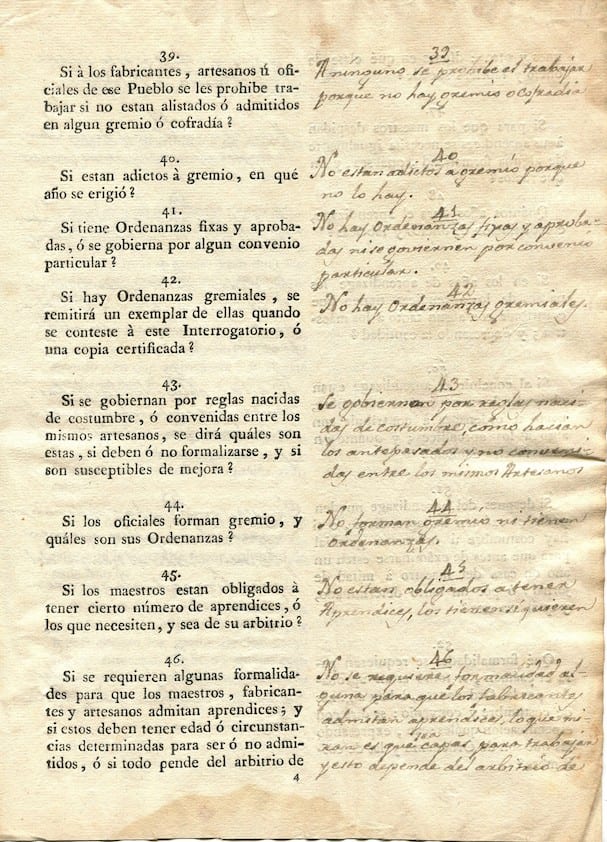 39.
Si à los fabricantes, artesanos ú ofi-
ciales de ese Pueblo se les prohibe tra-
bajar si no estan alistados ó admitidos
en algun gremio ó cofradía?
40.
Si estan adictos à gremio, en qué
año se erigió?
41.
Si tiene Ordenanzas fixas y aproba-
das, ó se gobierna por algun convenio
particular?
42.
Si hay Ordenanzas gremiales, se
remitirá un exemplar de ellas quando
se conteste à este Interrogatorio, ó
una copia certificada?
43.
Si se gobiernan por reglas nacidas
de costumbre, ó convenidas entre los
mismos artesanos, se dirá quáles son
estas, si deben ó no formalizarse, y si
son susceptibles de mejora?
44.
Si los oficiales forman gremio, y
quáles son sus Ordenanzas?
45.
Si los maestros estan obligados à
tener cierto número de aprendices, ó
los que necesiten, y sea de su arbitrio?
46.
Si se requieren algunas formalida-
des para que los maestros, fabrican-
tes y artesanos admitan aprendices; y
si estos deben tener edad ó circunstan-
cias determinadas para ser ó no admi-
tidos, ó si todo pende del arbitrio de
4
39
A ninguno se prohibe el trabajar
porque no hay gremio o Cofradia
40
No estan adictos a gremio porque
no lo hay.
41
No hay Ordenanzas fixas y aproba-
das ni se goviernen por convenio
particular.
42
No hay Ordenanzas gremiales.
43
Se gobiernan por reglas naci-
das de costumbre, como hacian
los antepasados y no conveni-
das entre los mismos Artesanos
44
No forman gremio ni tienen
Ordenanzas.
45
No estan obligados a tener
Aprendices, los tienen si quieren
46
No se requiere formalidad al-
guna para que los fabricantes
admitan aprendices, lo que mi-
ran es que sea capas para trabajar
y esto depende del arbitrio de